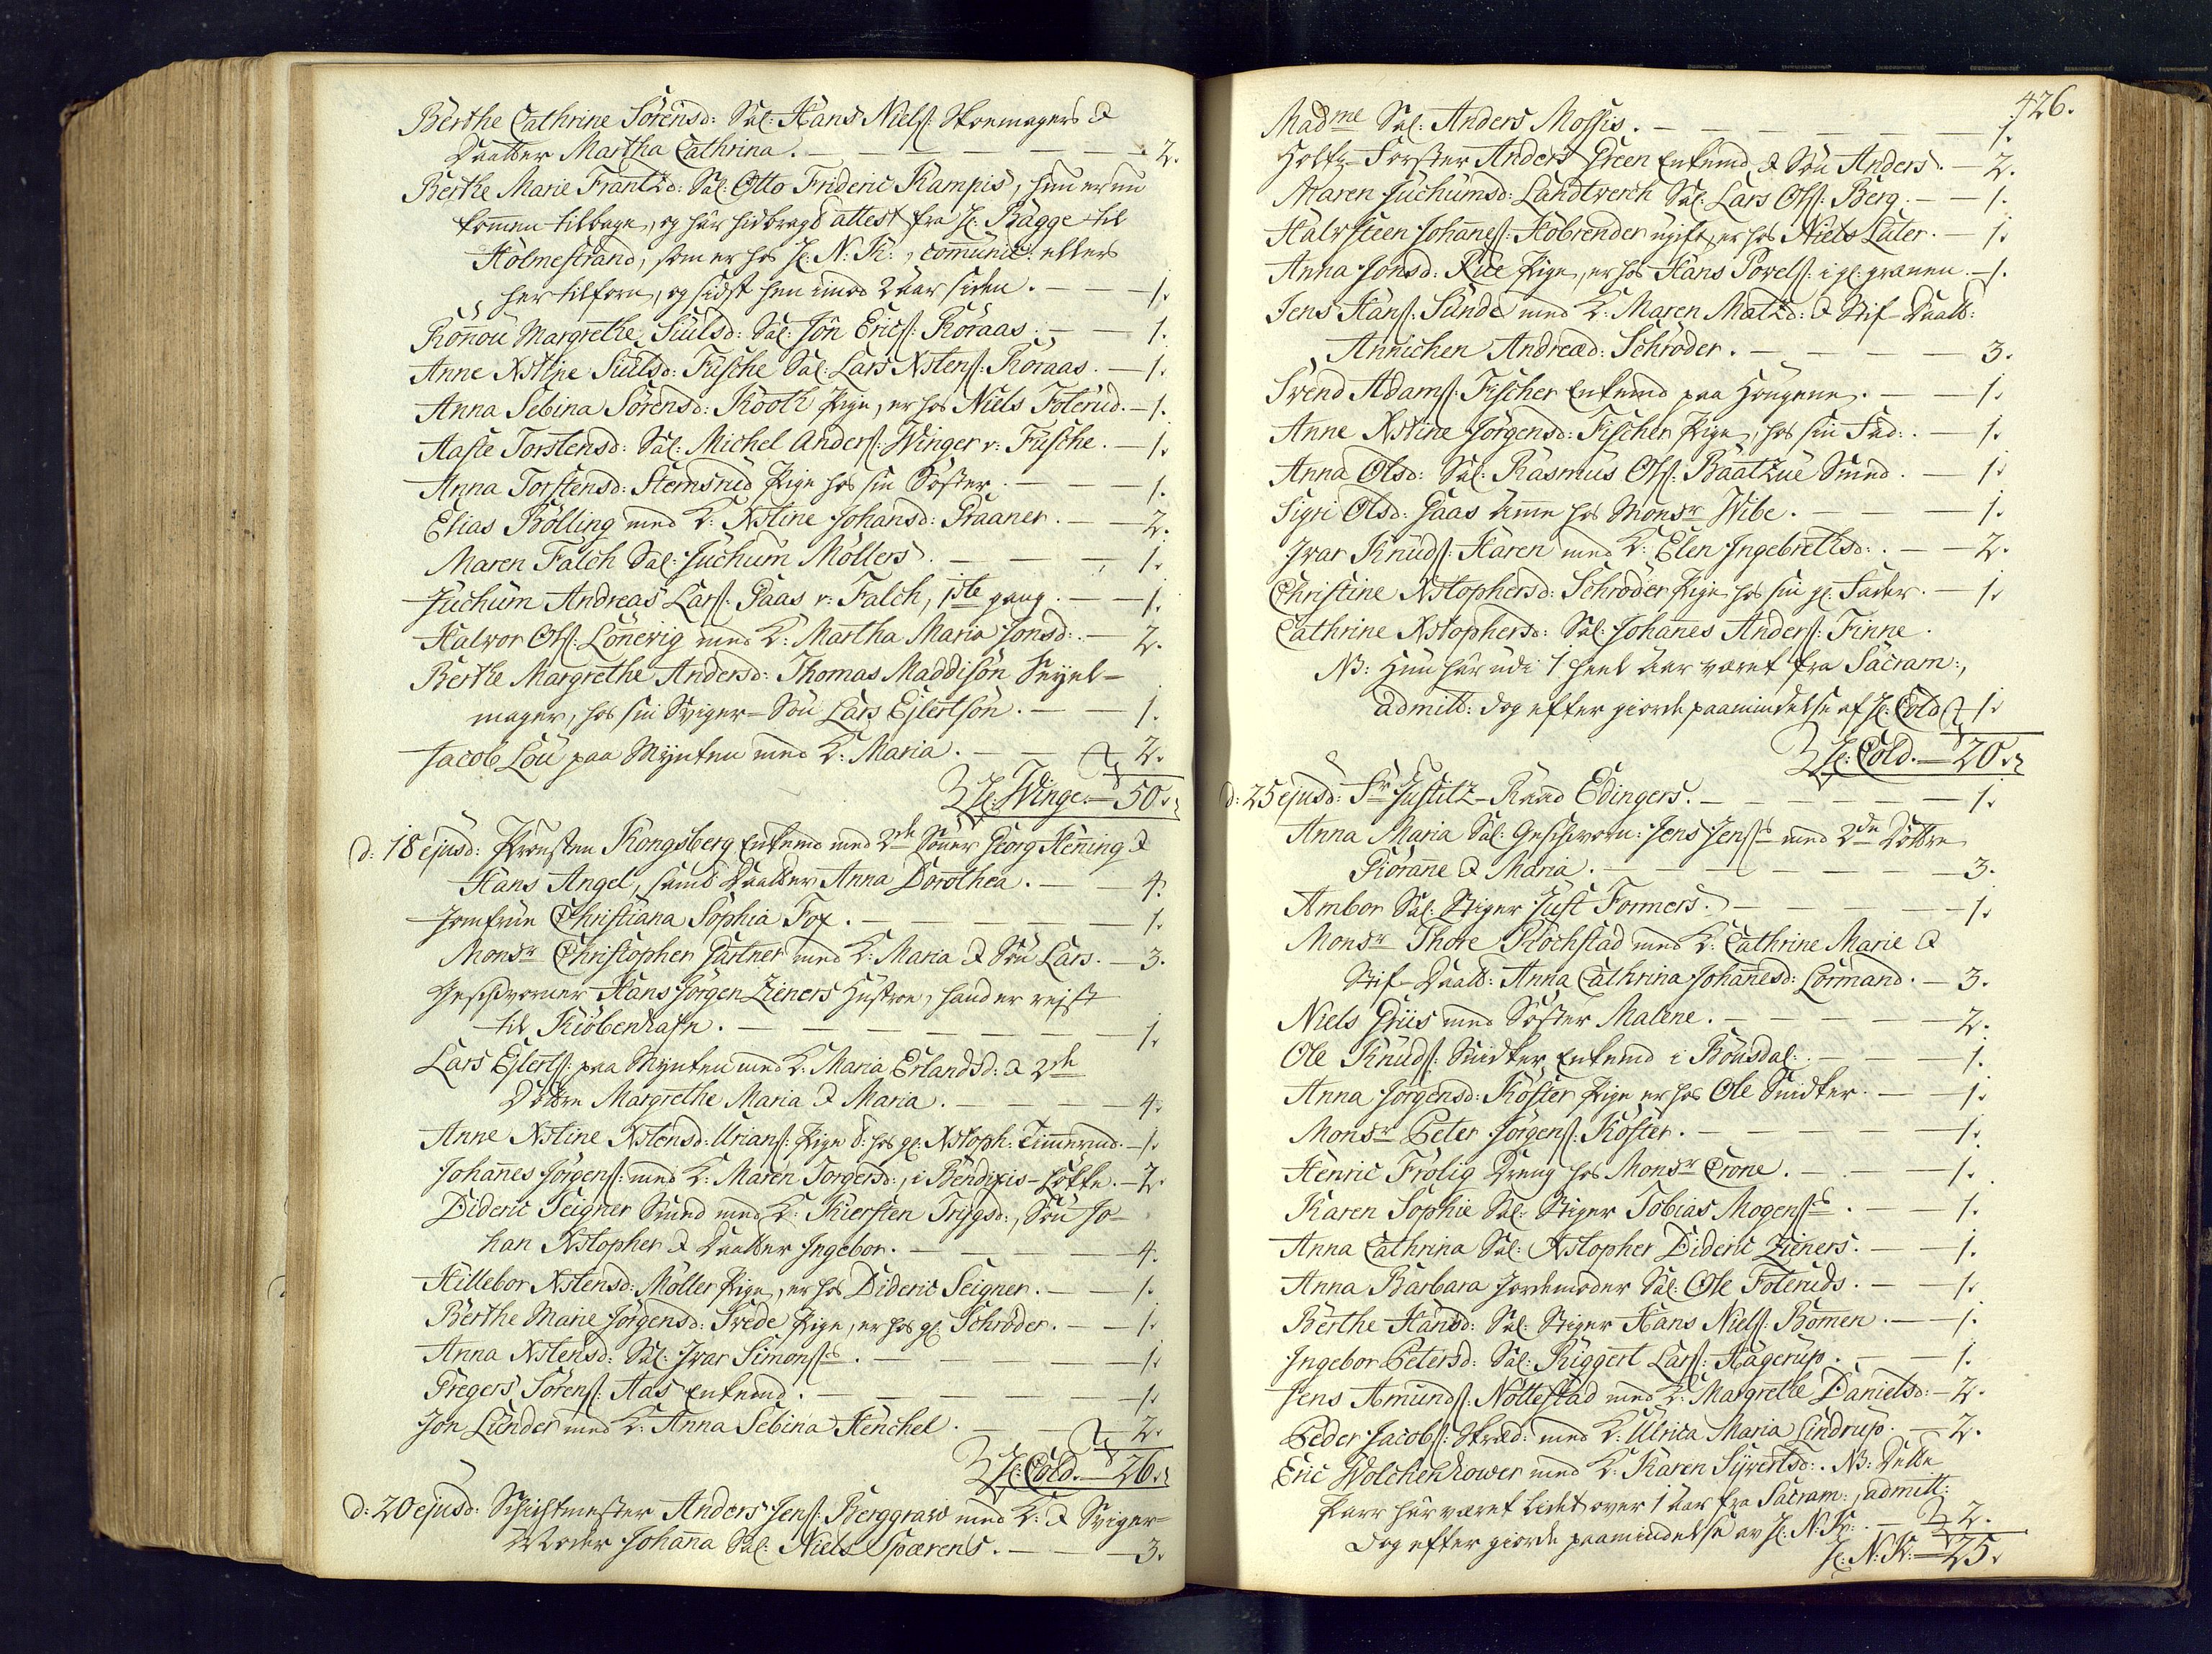 Berthe Cathrine Sörensd: Sal: Hans Niels: Skoemagers &
Daatter Martha Cathrina. — 2.
Berthe Marie Frantzd: Sal: Otto Frideric Kampis, hun er nu
kommen tilbage, og har hidbragt attest fra H: Bagge til
Holmestrand, som er hos H: N: K:, communic: ellers
her tilforn, og sidst hen imod 2 aar siden. — 1.
Rönnou Margrethe Siulsd: Sal: Jon Erics: Röraas. — 1.
Anne Xstine Siulsd: Fusche Sal: Lars Xstens: Röraas. — 1.
Anna Sebina Sörensd: Kooth Pige, er hos Niels Foterud. — 1.
Aaste Torstensd: Sal: Michel Anders: Winger v: Fusche. — 1.
Anna Torstensd: Stemsrud Pige hos sin Söster. — 1.
Elias Bölling med K: Xstine Johansd: Graaner. — 2.
Maren Falch Sal: Juchum Möllers. — 1.
Juchum Andreas Lars: Gaas v: Falch, 1ste gang. — 1.
Halvor Ols: Lönnevig med K: Martha Maria Jonsd: — 2.
Berthe Margrethe Andersd: Thomas Maddison Seyel-
mager, hos sin Sviger-Sön Lars Ejlertsön. — 1.
Jacob Lou paa Mynten med K: Maria. — 2.
H: Winge. — 50.
d: 18 ejusd: Provsten Kongsberg Enkemd med 2de Sönner Georg Henning &
Hans Angel, samt Daatter Anna Dorothea. — 4.
Jomfrue Christiana Sophia Fox. — 1.
Monsr Christopher Gärtner med K: Maria & Sön Lars. — 3.
Geschworner Hans Jörgen Zieners Hustroe, hand er rejst
til Kiöbenhafn. — 1.
Lars Ejlerts: paa Mynten med K: Maria Erlandsd: & 2de
Döttre Margrethe Maria & Maria. — 4.
Anne Xstine Xstensd: Urians: Pige d: hos gl: Xstoph: Timmermd. — 1.
Johannes Jörgens: med K: Maren Torgersd:, i Bendixis-Lökke. — 2.
Dideric Seigner Smed med K: Kiersten Trygsd:, Sön Jo-
han Xstopher & Daatter Ingebor. — 4.
Hillebor Xstensd: Möller Pige, er hos Dideric Seigner. — 1.
Berthe Marie Jörgensd: Trede Pige, er hos gl: Schröder. — 1.
Anna Xstensd: Sal: Ivar Simonss. — 1.
Gregers Sörens: Aas Enkemd. — 1.
Jon Lunder med K: Anna Sebina Henchel. — 2.
H: Cold. — 26.
d: 20 ejusd: Schichtmester Anders Jens: Berggraw med K: & Sviger-
Moder Johanna Sal: Niels Spærens. — 3.
426.
Madme Sal: Anders Mossis. — 1.
Holtz-Forster Anders Green Enkemd & Sön Anders. — 2.
Maren Juchumsd: Landtverch Sal: Lars Ols: Berg. — 1.
Halvsteen Johannes: Hobrender ugift, er hos Niels Luter. — 1.
Anna Jonsd: Rue Pige, er hos Hans Povels: i gl: gruven. — 1.
Jens Hans: Sunde med K: Maren Matzd: & Stif-Daatt:
Annichen Andread: Schröder. — 3.
Svend Adams: Fischer Enkemd paa Hougene. — 1.
Anne Xstine Jörgensd: Fischer Pige, hos sin Fad: — 1.
Anna Olsd: Sal: Rasmus Ols: Baatzue Smed. — 1.
Sigri Olsd: Gaas Amme hos Monsr Wibe. — 1.
Ivar Knuds: Haren med K: Elen Ingebrethsd: — 2.
Christine Xstophersd: Schröder Pige hos sin gl: Fader. — 1.
Cathrine Xstophersd: Sal: Johannes Anders: Finne.
NB: Hun har udi 1 heel aar været fra Sacram:,
admitt: dog efter giorde paamindelse af H: Cold 1.
H: Cold. — 20.
d: 25 ejusd: Fr Justitz-Raad Edingers. — 1.
Anna Maria Sal: Geschworn: Jens Jenss med 2de Döttre
Giöranne & Maria. — 3.
Ambor Sal: Stiger Just Formers. — 1.
Monsr Thore Klochstad med K: Cathrine Marie &
Stif-Daatt: Anna Cathrina Johannesd: Lormand. — 3.
Niels Griis med Söster Malene. — 2.
Ole Knuds: Snidker Enkemd i Bousdal: — 1.
Anna Jörgensd: Köster Pige er hos Ole Snidker. — 1.
Monsr Peter Jörgens: Köster. — 1.
Henric Frölig Dreng hos Monsr Crone. — 1.
Karen Sophie Sal: Stiger Tobias Mogenss. — 1.
Anna Cathrina Sal: Xstopher Dideric Zieners. — 1.
Anna Barbara Jordemoder Sal: Ole Foteruds. — 1.
Berthe Hansd: Sal: Stiger Hans Niels: Bommen. — 1.
Ingebor Petersd: Sal: Riggert Lars: Aagerup. — 1.
Jens Amunds: Nöttestad med K: Margrethe Danielsd: — 2.
Peder Jacobs: Skræd: med K: Ulrica Maria Lindrup. — 2.
Eric Wolchenhower med K: Karen Syvertsd: NB: Dette
Parr har været lidet over 1 aar fra Sacram:, admitt:
dog efter giorde paamindelse av H: N: K: — 2.
H: N: K: — 25.